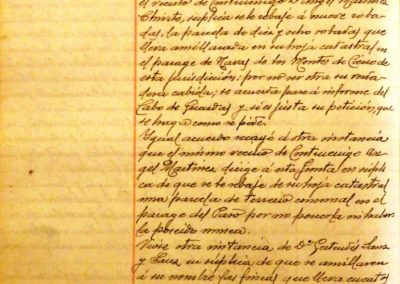 el vecino de Cintruenigo D. Angel Martinez
Chivito, suplica se le rebaje á nueve roba-
das, la parcela de diez y ocho robadas que
lleva amillarada en su hoja catastral en
el parage de Navas de los Montes de Cierzo de
esta jurisdiccion; por no ser otra su verda-
dera cabida; se acuerda pase á informe del
Cabo de Guardas y si es justa su peticion, que
se haga como se pide.
Igual acuerdo recayó á otra instancia
que el mismo vecino de Cintruenigo An-
gel Martinez dirige á esta Junta en súpli-
ca de que se le rebaje de su hoja catastral
una parcela de terreno comunal en el
parage del por no poseerla ni haber-
la poseido nunca.
Vióse otra instancia de Dª Gertrudis
y en súplica de que se amillaren
á su nombre las fincas que lleva